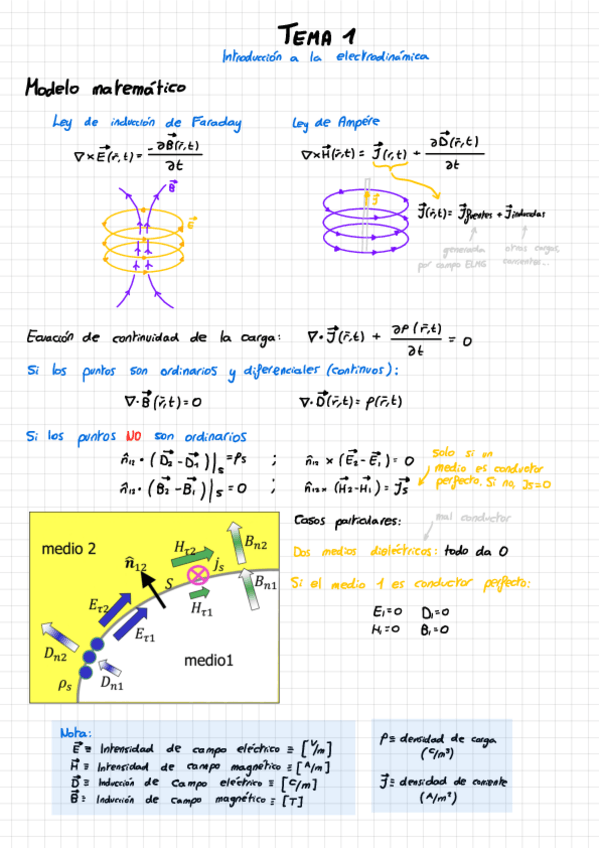 TEMA 1
Introducción a la electrodinámica
Modelo matemático
Ley de inducción de Faraday
Ley de Ampére
∇×E⃗(r̄,t) = -∂B⃗(r̄,t)/∂t
∇×H⃗(r̄,t) = J⃗(r,t) + ∂D⃗(r̄,t)/∂t
B⃗
E⃗
J⃗
J⃗(r̄,t) = J⃗fuentes + J⃗inducidas
generada por campo ELMG
otras cargas, corrientes...
Ecuación de continuidad de la carga: ∇·J⃗(r̄,t) + ∂ρ(r̄,t)/∂t = 0
Si los puntos son ordinarios y diferenciales (continuos):
∇·B⃗(r̄,t) = 0
∇·D⃗(r̄,t) = ρ(r̄,t)
Si los puntos NO son ordinarios
n̂12 · (D⃗2 - D⃗1)|s = ρs ; n̂12 × (E⃗2 - E⃗1) = 0
n̂12 · (B⃗2 - B⃗1)|s = 0 ; n̂12 × (H⃗2 - H⃗1) = J⃗s
Solo si un
medio es conductor
perfecto. Si no, Js=0
medio 2
n̂12
Hτ2
js
Bn2
S
Bn1
Hτ1
Eτ2
Eτ1
Dn2
Dn1
ρs
medio1
Casos particulares:
mal conductor
Dos medios dieléctricos: todo da 0
Si el medio 1 es conductor perfecto:
E1=0 D1=0
H1=0 B1=0
Nota:
E⃗ ≡ Intensidad de campo eléctrico ≡ [V/m]
H⃗ ≡ Intensidad de campo magnético ≡ [A/m]
D⃗ ≡ Inducción de Campo eléctrico ≡ [C/m]
B⃗ ≡ Inducción de Campo magnético ≡ [T]
ρ ≡ densidad de carga
(C/m³)
J⃗ ≡ densidad de corriente
(A/m²)